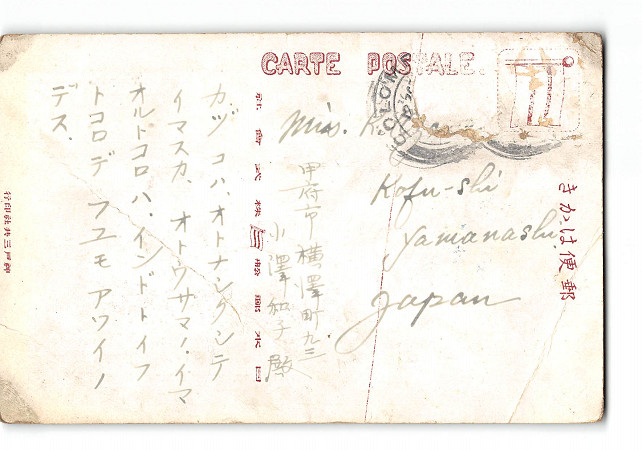 CARTE POSTALE.
COLOM
Miss. K.
Kofu-shi
Yamanashi
Japan
きかは便郵
甲府市横澤町九三
小澤和子殿
カヅコハ、オトナシクシテ
イマスカ、オトウサマノイマ
オルトコロハ、インドトイフ
トコロデ フユモ アツイノ
デス.
行印社井三戸神